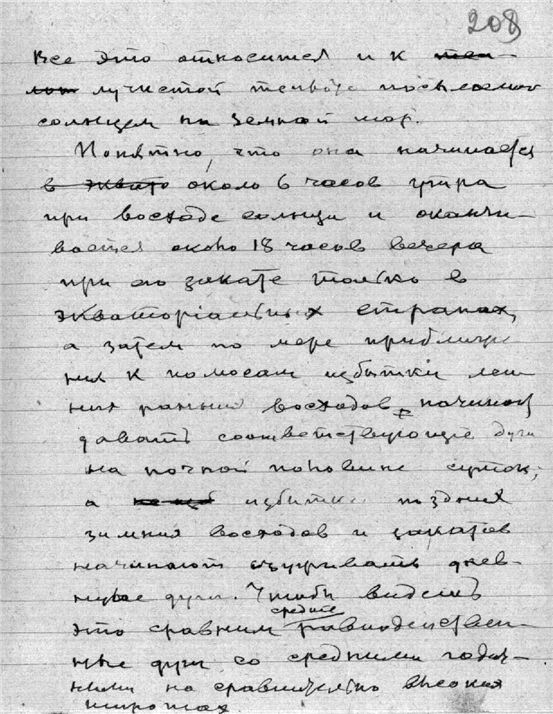 208
Все это относится и к
лучистой теплоте посылаемой
солнцем на земной шар.
Понятно, что она начинается
около 6 часов утра
при восходе солнца и оканчи-
вается около 18 часов вечера
при его закате только в
экваторіальных странах,
а затем по мере приближе
ния к полюсам избытки лет
них ранних восходов начинают
давать соответствующие дуги
на ночной половине суток;
а избытки поздних
зимних восходов и закатов
начинают съуживать днев-
ные дуги. Чтобы видеть
средние
это сравним равноденствен-
ные дуги со средними годич-
ными на сравнительно высоких
широтах